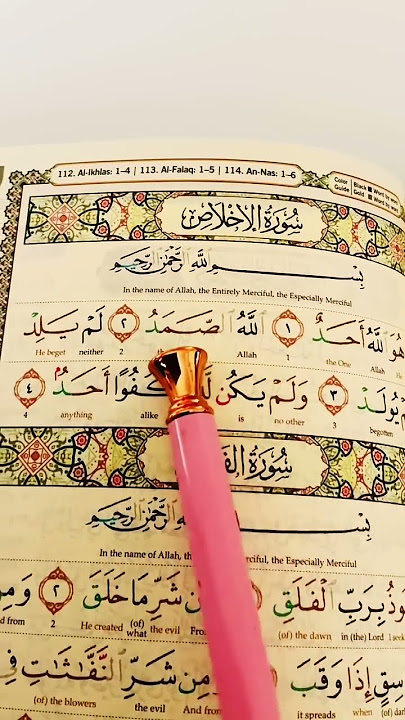 112. Al-Ikhlas: 1-4 | 113. Al-Falaq: 1-5 | 114. An-Nas: 1-6
Color Guide Black Word by
Gold Word by
سُورَةُ الإِخْلَاصِ
بِسْمِ اللَّهِ الرَّحْمَٰنِ الرَّحِيمِ
In the name of Allah, the Entirely Merciful, the Especially Merciful
هُوَ اللَّهُ أَحَدٌ ١ اللَّهُ الصَّمَدُ ٢ لَمْ يَلِدْ
He beget neither 2 Allah 1 the One Allah
يُولَدْ ٣ وَلَمْ يَكُن كُفُوًا أَحَدٌ ٤
4 anything alike is no other 3 begotten
سُورَةُ
بِسْمِ الرَّحْمَٰنِ الرَّحِيمِ
In the name of Allah, the Especially Merciful
بِرَبِّ الْفَلَقِ شَرِّ مَا خَلَقَ ٢ وَمِن
from 2 He created (of) what the evil (of) the dawn in (the) Lord I seek
إِذَا وَقَبَ وَمِن شَرِّ النَّفَّاثَاتِ فِي
(of) the blowers the evil it spreads when